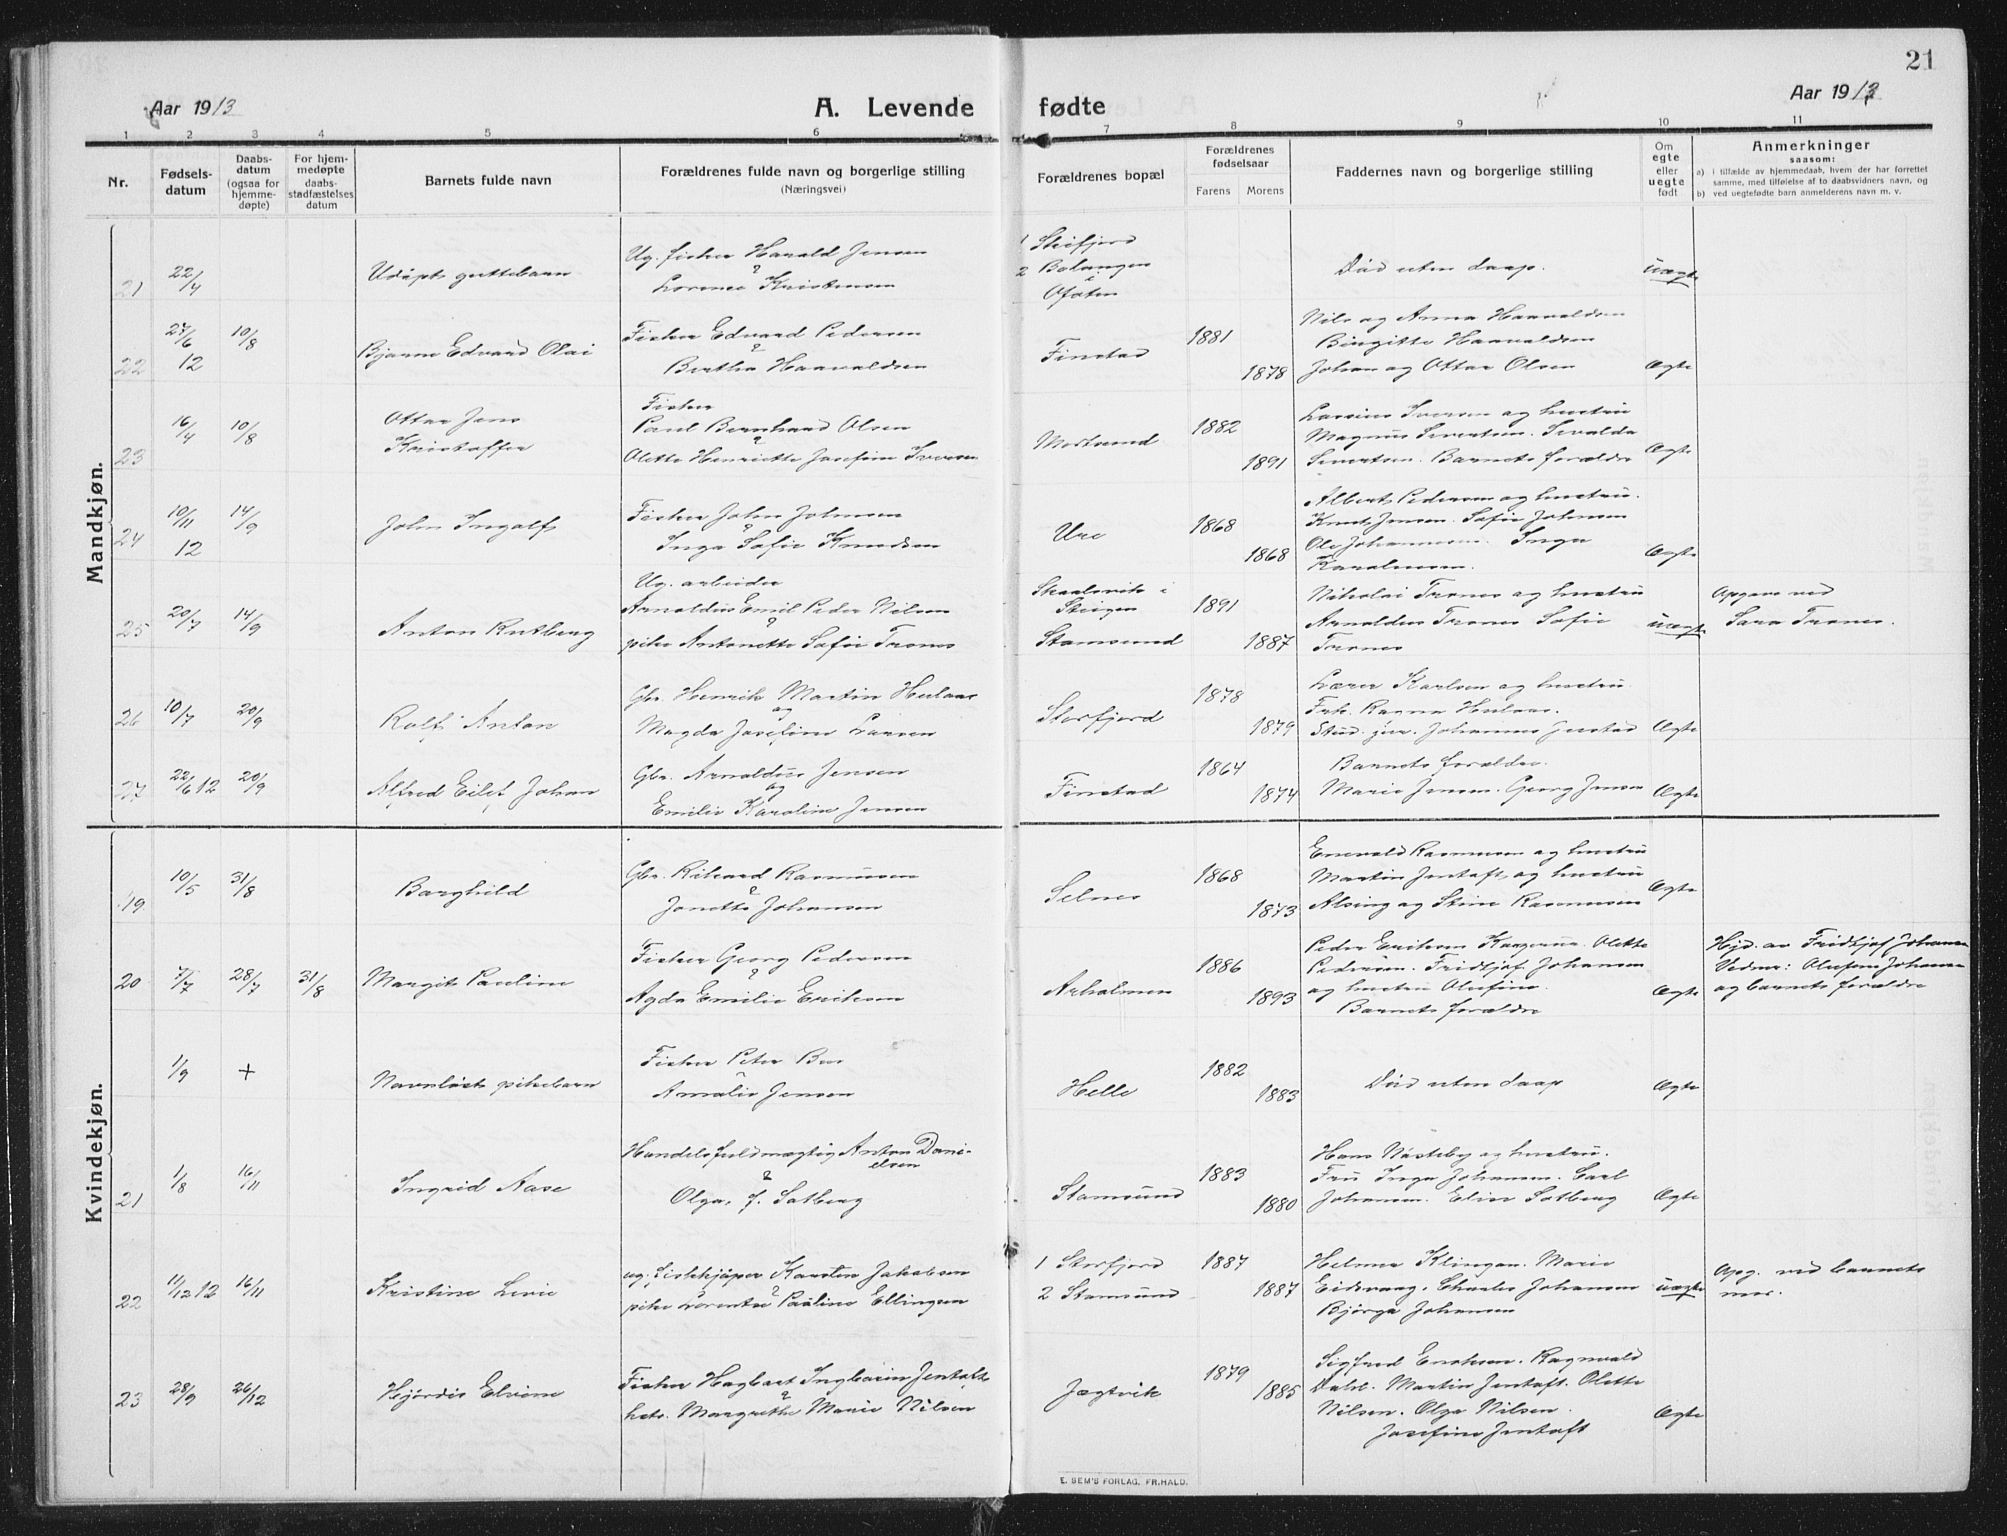 21
Aar 1913
A. Levende fødte
Aar 1913
1 2 3 4 5 6 7 8 9 10 11
Nr.
Fødsels-
datum
Daabs-
datum
(ogsaa for
hjemme-
døpte)
For hjem-
medøpte
daabs-
stadfæstelses
datum
Barnets fulde navn
Forældrenes fulde navn og borgerlige stilling
(Næringsvei)
Forældrenes bopæl
Forældrenes
fødselsaar
Farens Morens
Faddernes navn og borgerlige stilling
Om
egte
eller
uegte
født
Anmerkninger
saasom:
a) i tilfælde av hjemmedaab, hvem der har forrettet
samme, med tilføielse af to daabsvidners navn, og
b) ved uegtefødte barn anmelderens navn m. v.
Mandkjøn.
21 22/4 Udøpt guttebarn
Ug. fisker Harald Jensen
&
Lorense Kristensen
1
2 Balangen
i
Ofoten
Død uten daap.
uægte
22 27/6 12 10/8 Bjarne Edvard Olai
Fisker Edvard Pedersen
&
Bertha Haavaldsen
Finstad 1881 1878
Nils og Anna Haavaldsen
Birgitte Haavaldsen
Johan og Ottar Olsen
Ægte
23 16/4 10/8 Ottar Jens
Kristoffer
Fisker
Paul Bernhard Olsen
&
Olette Henriette Josefine Iversen
Mortsund 1882 1891
Iversen og hustru
Magnus Sivertsen. Sevalda
Sivertsen. Barnets forældre
Ægte
24 10/11 12 14/9 John Ingolf
Fisker John Johnsen
&
Inga Sofie Knudsen
Ure 1868 1868
Albert Pedersen og hustru.
Knut Jensen. Sofie Johnsen
Ole Johannesen. Inga
Karolinesen.
Ægte
25 20/7 14/9 Anton Rutberg
Ug. arbeider
Arnoldus Emil Peder Nilsen
&
pike Antonette Sofie Trones
Skaalsvik i
Steigen
Stamsund 1891 1887
Nikolai Trones og hustru
Arnoldus Trones Sofie
Trones
uægte
Opgave ved
Sara Trones.
26 10/7 20/9 Rolf Anton
Gbr. Henrik Martin Heılaas
og
Magda Josefine Larsen
Storfjord 1878 1879
Lærer Karlsen og hustru
Frk. Ragna
Stud. jur. Johannes Justad
Ægte
27 22/6 12 20/9 Alfred Eilef Johan
Gbr. Arnoldus Jensen
og
Emilie Karoline Jensen
Finstad 1864 1874
Barnets forældre.
Marie Jensen. Georg Jensen
Ægte
Kvindekjøn.
19 10/5 31/8 Borghild
Gbr. Rikard Rasmussen
&
Janette Johansen
Selnes 1868 1873
Enevald Rasmussen og hustru
Martin Jentoft og hustru
Alsing og Stine Rasmussen
Ægte
20 7/7 28/7 31/8 Margit Pauline
Fisker Georg Pedersen
Agda Emilie Eriksen
Arholmen 1886 1893
Peder Eriksen Olette
Pedersen. Fridtjof Johansen
og hustru Olufine.
Barnets forældre
Ægte
Hjd. av Fridtjof Johansen
Vidner: Olufine Johansen
og barnets forældre
1/9 + Navnløst pikebarn
Fisker Peter Berg
Amalie Jensen
Helle 1882 1883
Død uten daap
Ægte
21 1/8 16/11 Ingrid Aase
Handelsfuldmægtig Anton Dani-
elsen
&
Olga. J. Solberg
Stamsund 1883 1880
Hans Næsteby og hustru.
Fru Inga Johansen. Carl
Johansen. Elise Solberg
Ægte
22 11/12 12 16/11 Kristine Livie
ug. fiskekjøper Karsten Jakobsen
&
pike Lorentse Pauline Ellingsen
1 Storfjord
2 Stamsund 1887 1887
Helmer Klingan. Marie
Eidsvaag. Charles Johansen
Bjørga Johansen
uægte
Opg. ved barnets
mor.
23 28/9 26/12 Hjørdis Elvine
Fisker Hagbart Ingbrein Jentoft
&
hstr. Margrethe Marie Nilsen
Jægtvik 1879 1885
Sigfred Enoksen. Ragnvald
Dahl. Martin Jentoft. Olette
Nilsen. Olga Nilsen.
Josefine Jentoft
Ægte
E. SEM'S FORLAG. FR.HALD.